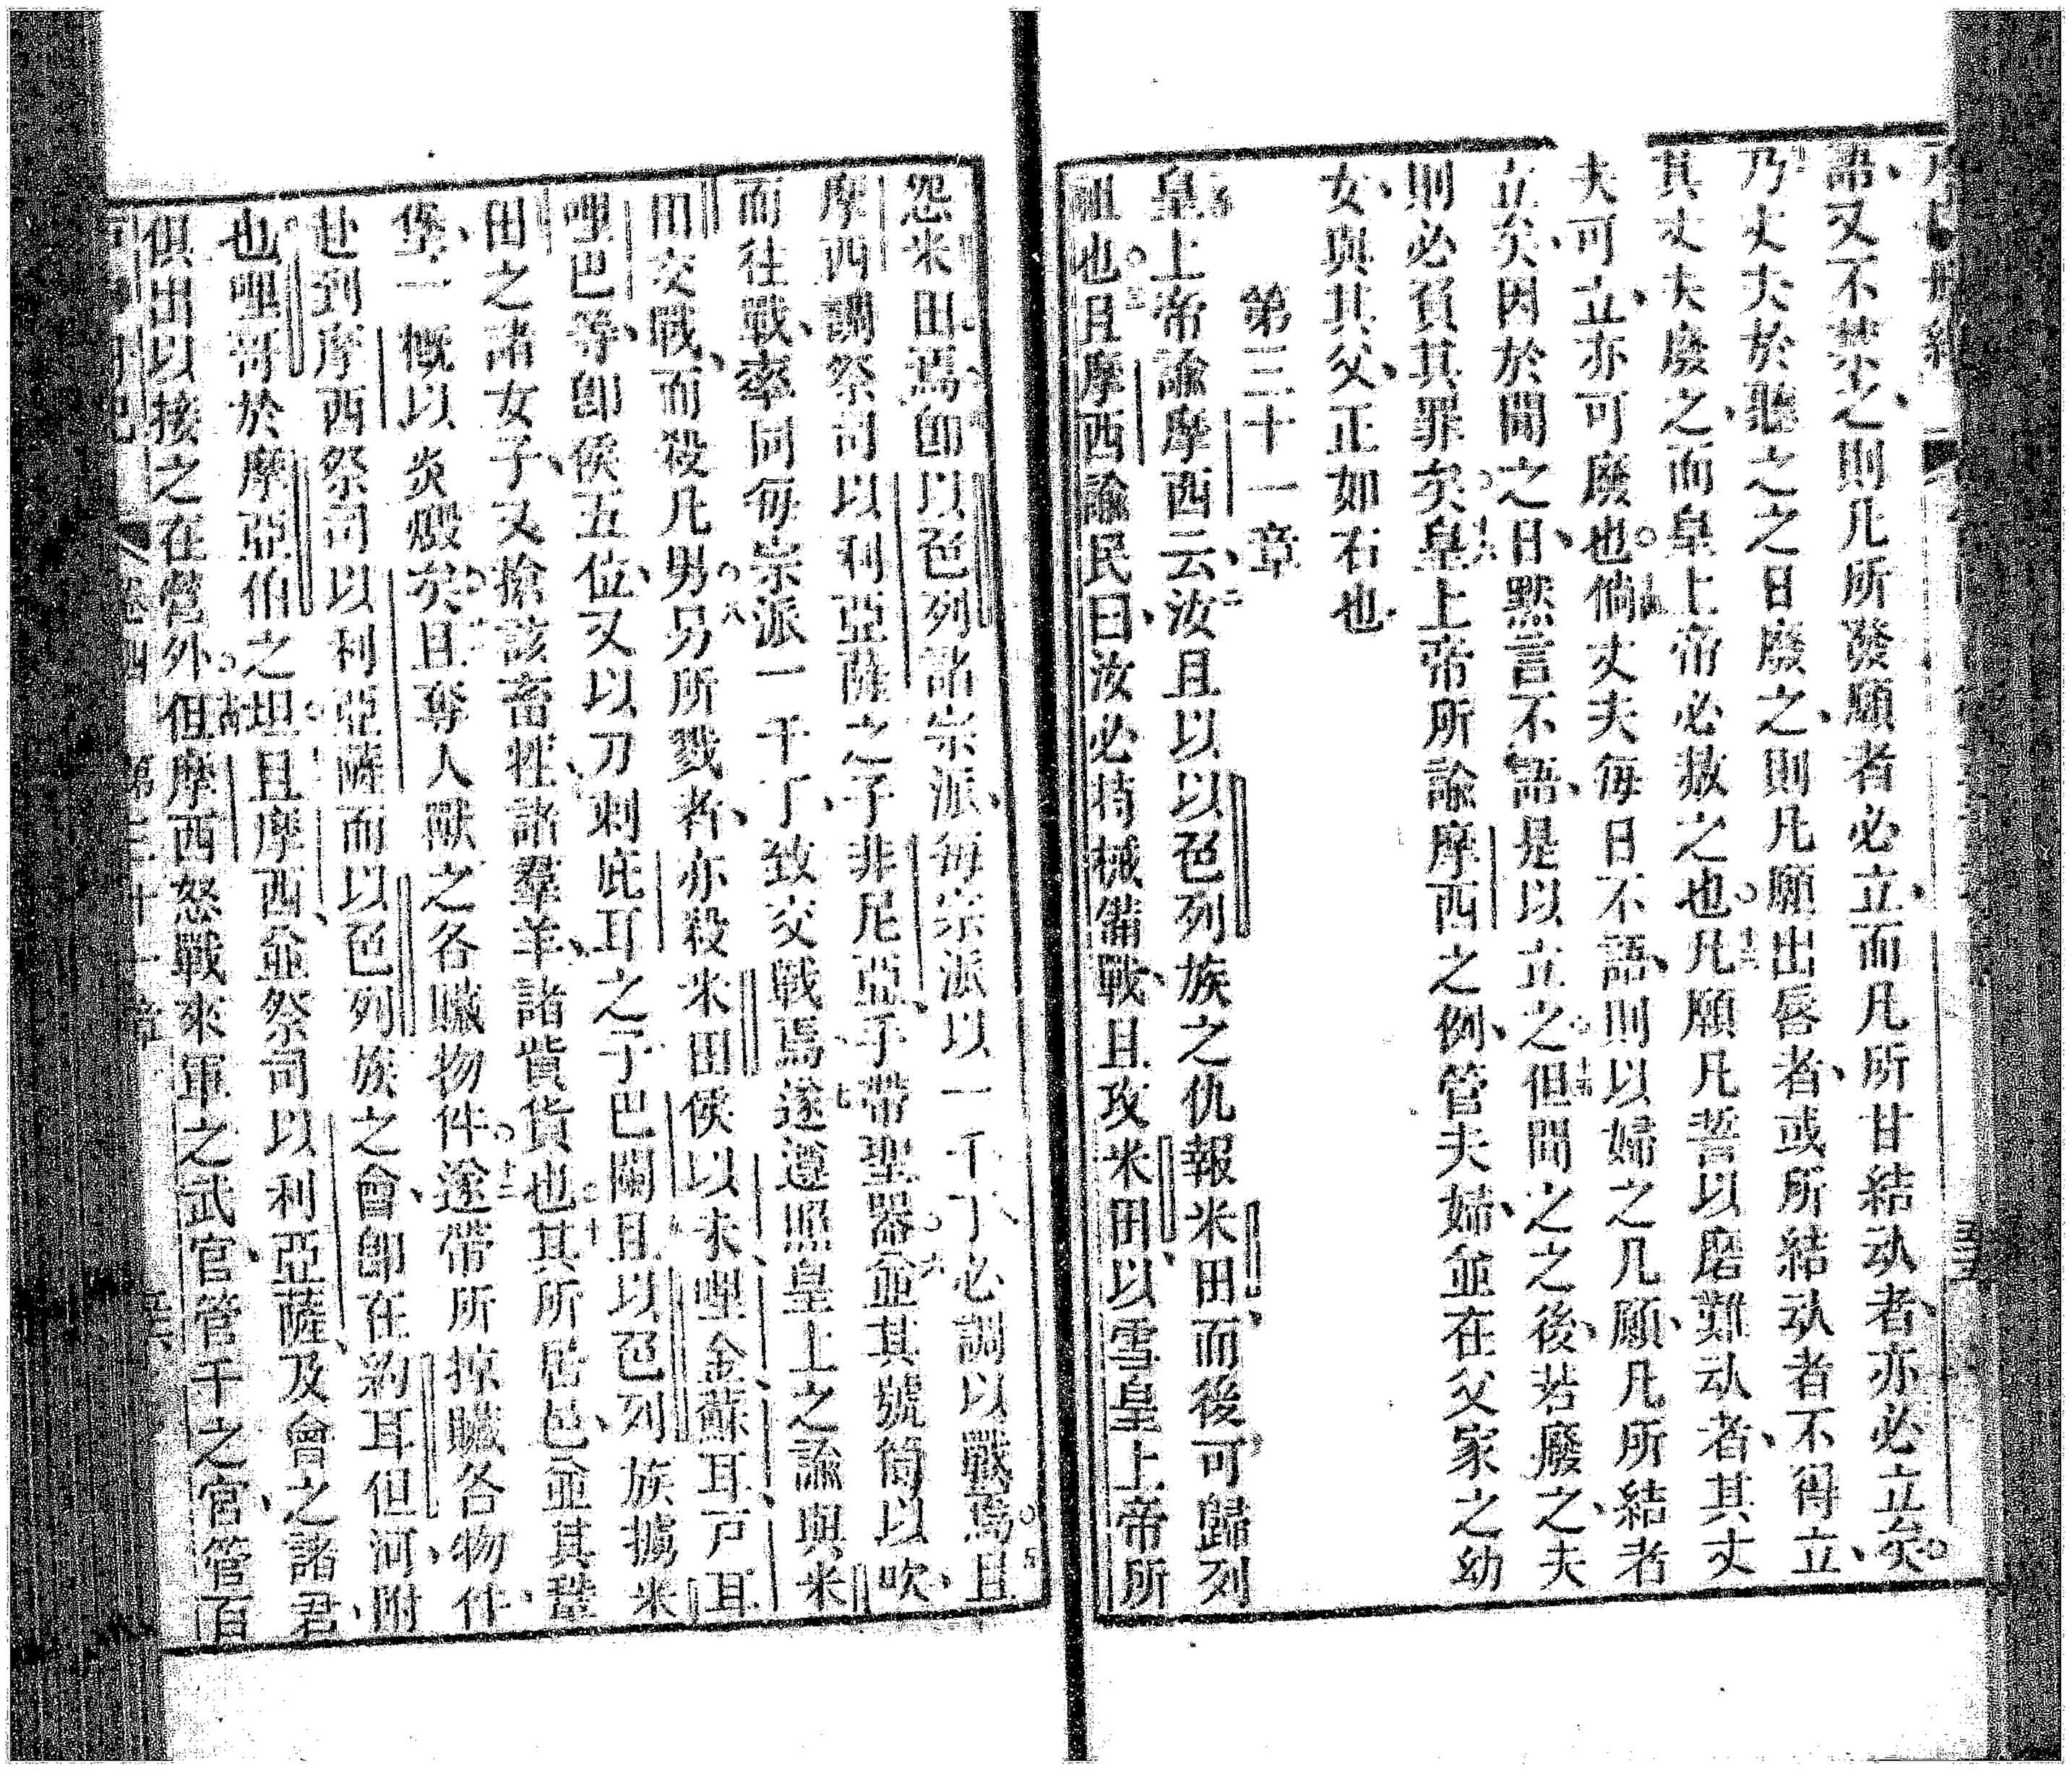 語、又不禁之、則凡所發願者必立、而凡所甘結劝者、亦必立矣。
乃丈夫於聽之之日廢之、則凡願出唇者、或所結劝者不得立、
其丈夫廢之、而皇上帝必赦之也。十三凡願凡誓以磨難劝者、其丈
夫可立、亦可廢也。十四倘丈夫每日不語、則以婦之凡願、凡所結者
立矣、因於聞之日、默言不語、是以立之。十五但聞之之後、若廢之、夫
則必負其罪矣。十六皇上帝所諭摩西之例、管夫婦、並在父家之幼
女、與其父、正如右也。
第三十一章
皇上帝諭摩西云、二汝且以以色列族之仇報米田、而後可歸列
祖也。三且摩西諭民曰、汝必持械備戰、且攻米田、以雪皇上帝所
怨米田焉。四即以色列諸宗派、每宗派以一千丁、必調以戰焉。五且
摩西調祭司以利亞薩之子非尼亞、手帶聖器並其號筒以吹、六
而往戰、率同每宗派一千丁、致交戰焉、七遂遵照皇上之諭、與米
田交戰、而殺凡男。八另所戮者、亦殺米田侯以未、哩金、蘇耳、戸耳、
哩巴等、即侯五位、又以刀刺庇耳之子巴闌。九且以色列族擄米
田之諸女子、又搶該畜牲、諸羣羊、諸貲貨也。十其所居邑、並其
堡、一概以炎燬矣。十一且奪人獸之各贓物件。十二遂帶所掠贓各物件、
赴到摩西、祭司以利亞薩、而以色列族之會、即在約耳但河、附
也哩哥、於摩亞伯之坦。十三且摩西、並祭司以利亞薩、及會之諸君、
俱出以接之在營外。十四但摩西怒戰來軍之武官、管千之官、管百
卷四 第三十一章